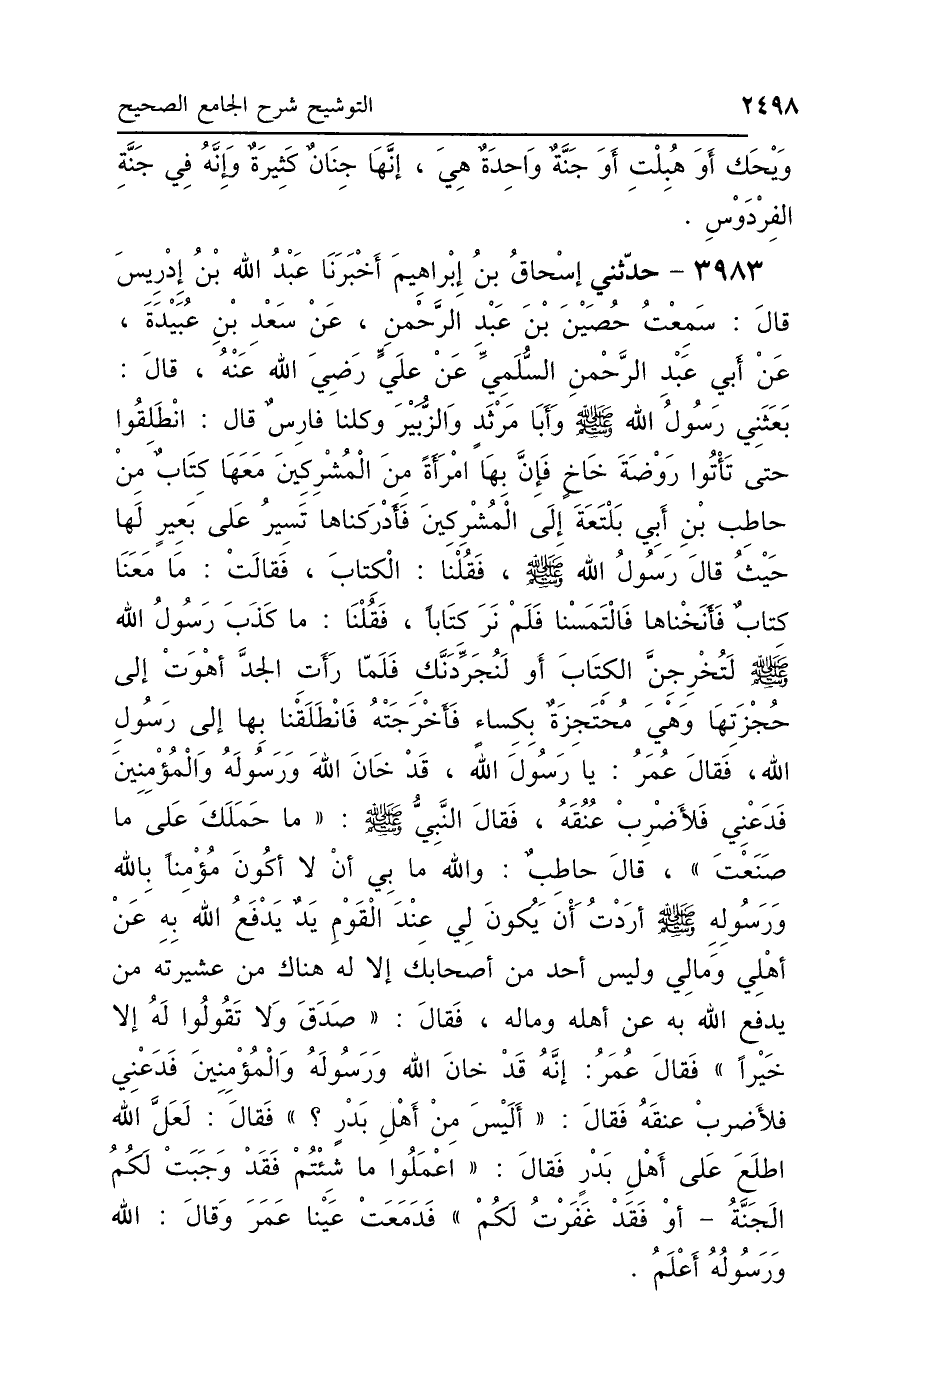 ٢٤٩٨ التوشيح شرح الجامع الصحيح
وَيْحَك أَوَ هُبِلْتِ أَوَ جَنَّةٌ وَاحِدَةٌ هِيَ ، إنَّهَا جِنَانٌ كَثِيرَةٌ وَإِنَّهُ فِي جَنَّةِ
الفِرْدَوْسِ .
٣٩٨٣ - حدّثني إسْحاقُ بنُ إبْراهِيمَ أَخْبَرَنَا عَبْدُ الله بْنُ إدْرِيسَ
قالَ : سَمِعْتُ حُصَيْنَ بْنَ عَبْدِ الرَّحْمنِ ، عَنْ سَعْدِ بْنِ عُبَيْدَةَ ،
عَنْ أَبي عَبْدِ الرَّحْمنِ السُّلَمِيِّ عَنْ عَلَيٍّ رَضِيَ الله عَنْهُ ، قالَ :
بَعَثَنِي رَسُولُ الله ﷺ وَأَبَا مَرْثَدٍ وَالزُّبَيْرَ وكلنا فارسٌ قال : انْطَلِقُوا
حتى تَأْتُوا رَوْضَةَ خَاخٍ فَإِنَّ بِهَا امْرَأَةً مِنَ الْمُشْرِكِينَ مَعَهَا كِتَابٌ مِنْ
حاطِب بْنِ أَبي بَلْتَعَةَ إِلَى الْمُشْرِكِينَ فَأَدْرَكناها تَسِيرُ عَلَى بَعِيرٍ لَها
حَيْثُ قالَ رَسُولُ الله ﷺ ، فَقُلْنا : الْكِتابَ ، فَقالَتْ : مَا مَعَنَا
كتابٌ فَأَنَخْناها فَالْتَمَسْنا فَلَمْ نَرَ كِتَاباً ، فَقُلْنَا : ما كَذَبَ رَسُولُ الله
ﷺ لَتُخْرِجِنَّ الكِتَابَ أو لَنُجَرِّدَنَّكِ فَلَمّا رَأَت الجِدَّ أهْوَتْ إلى
حُجْزَتِهَا وَهْيَ مُحْتَجِزَةٌ بِكساءٍ فَأَخْرَجَتْهُ فَانْطَلَقْنا بِها إلى رَسُولِ
الله، فَقالَ عُمَرُ : يا رَسُولَ الله ، قَدْ خانَ اللهَ وَرَسُولَهُ وَالْمُؤْمِنِينَ
فَدَعْنِي فَلأَضْرِبْ عُنُقَهُ ، فَقالَ النَّبِيُّ ﷺ : « ما حَمَلَكَ عَلَى ما
صَنَعْتَ » ، قالَ حاطِبٌ : والله ما بِي أنْ لا أكُونَ مُؤْمِناً بِالله
وَرَسُولِهِ ﷺ أرَدْتُ أَن يَكُونَ لي عِنْدَ الْقَوْمِ يَدٌ يَدْفَعُ الله بِهِ عَنْ
أهْلي وَمالِي وليس أحد من أصحابك إلا له هناك من عشيرته من
يدفع الله به عن أهله وماله ، فَقالَ : « صَدَقَ وَلا تَقُولُوا لَهُ إلا
خَيْراً » فَقالَ عُمَرُ: إنَّهُ قَدْ خانَ الله وَرَسُولَهُ وَالْمُؤْمِنِينَ فَدَعْنِي
فلأضربْ عنقَهُ فَقالَ : « أَلَيْسَ مِنْ أهْلِ بَدْرٍ ؟ » فَقالَ : لَعَلَّ الله
اطلَعَ عَلَى أَهْلِ بَدْرٍ فَقالَ : « اعْمَلُوا ما شِئْتُمْ فَقَدْ وَجَبَتْ لَكُمُ
الَجَنَّةُ - أوْ فَقَدْ غَفَرْتُ لَكُمْ » فَدَمَعَتْ عَيْنا عمَرَ وَقالَ : الله
وَرَسُولُهُ أَعْلَمُ .